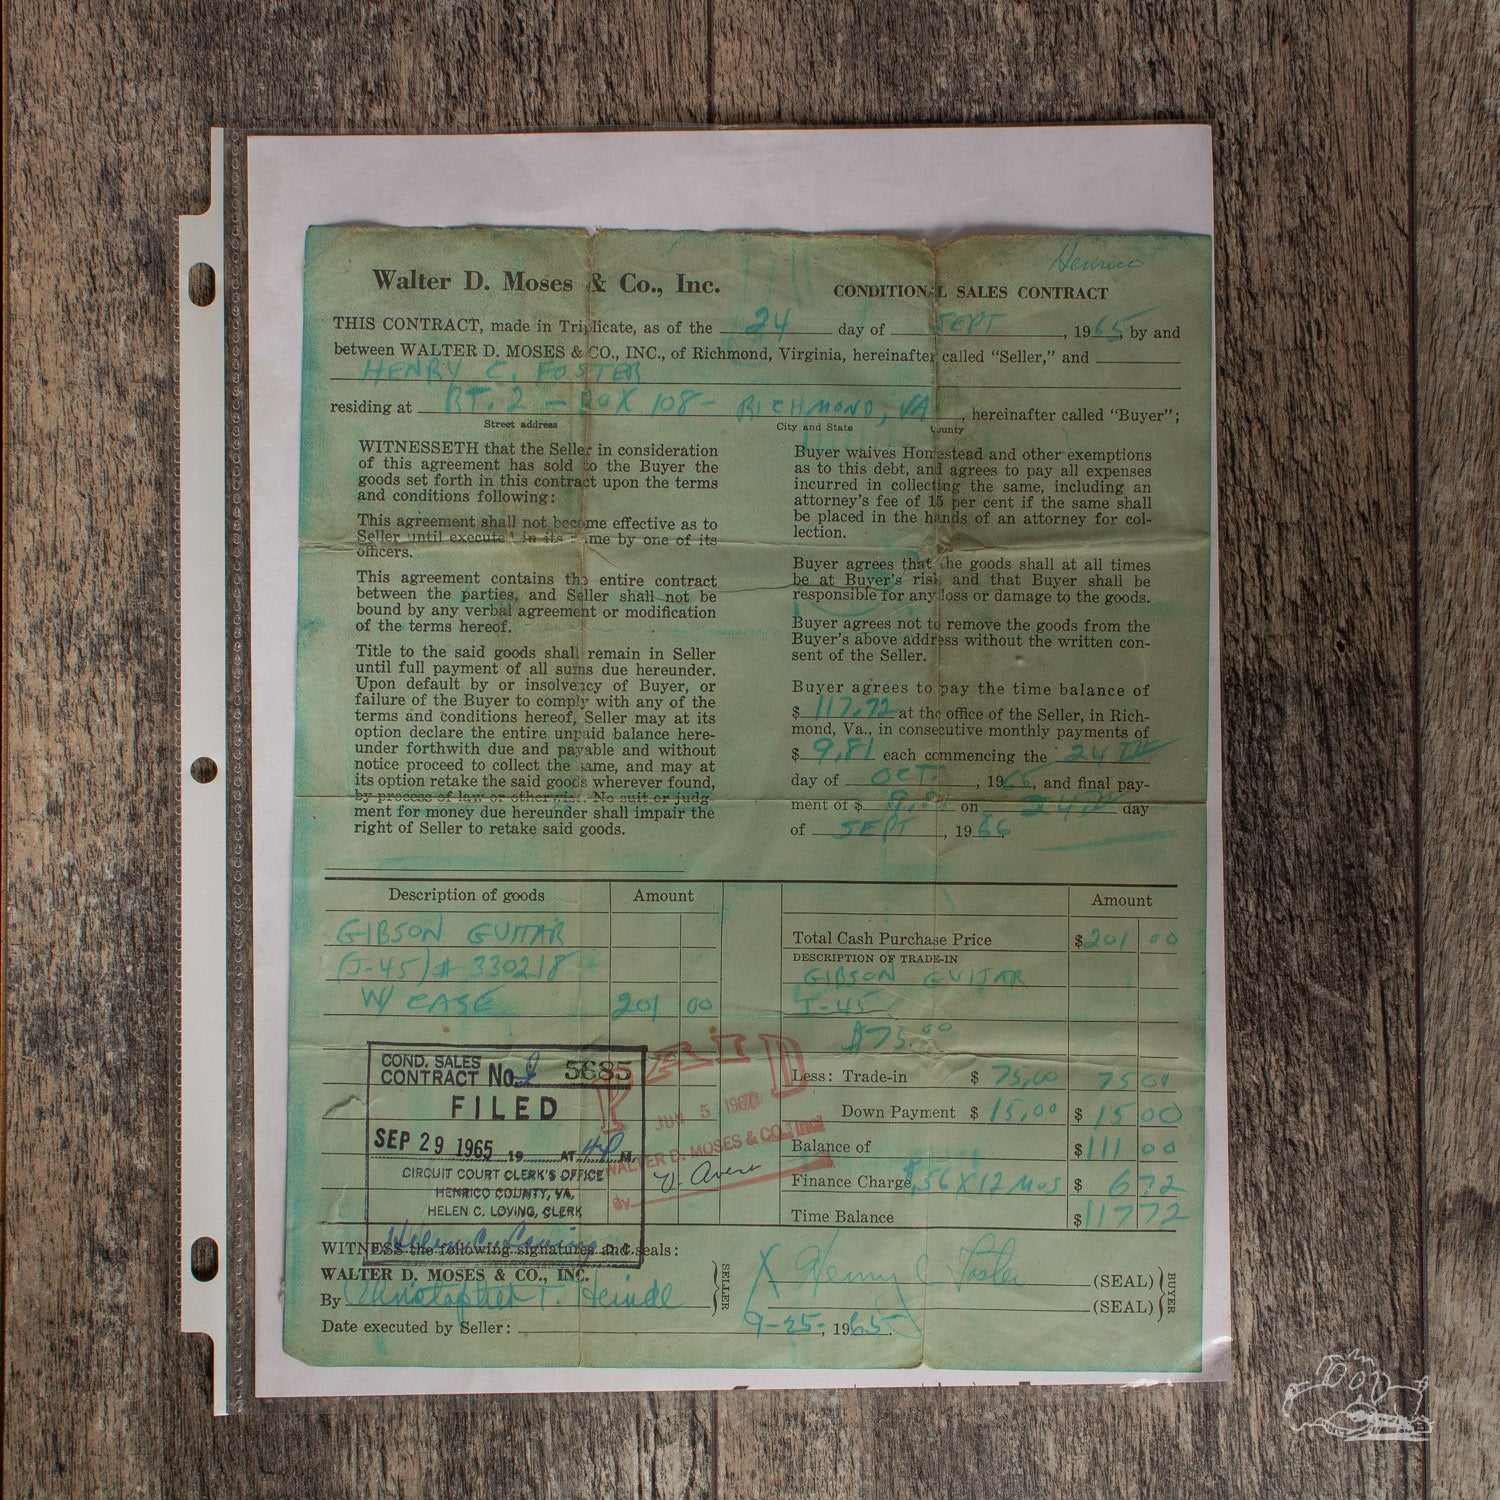 Henrico
Walter D. Moses & Co., Inc.
CONDITIONAL SALES CONTRACT
THIS CONTRACT, made in Triplicate, as of the 24 day of SEPT, 1965 by and
between WALTER D. MOSES & CO., INC., of Richmond, Virginia, hereinafter called "Seller," and
HENRY C. FOSTER
residing at RT. 2 - BOX 108 - RICHMOND, VA, hereinafter called "Buyer";
Street address City and State County
WITNESSETH that the Seller in consideration
of this agreement has sold to the Buyer the
goods set forth in this contract upon the terms
and conditions following:
This agreement shall not become effective as to
Seller until executed in its name by one of its
officers.
This agreement contains the entire contract
between the parties, and Seller shall not be
bound by any verbal agreement or modification
of the terms hereof.
Title to the said goods shall remain in Seller
until full payment of all sums due hereunder.
Upon default by or insolvency of Buyer, or
failure of the Buyer to comply with any of the
terms and conditions hereof, Seller may at its
option declare the entire unpaid balance here-
under forthwith due and payable and without
notice proceed to collect the same, and may at
its option retake the said goods wherever found,
by process of law or otherwise. No suit or judg-
ment for money due hereunder shall impair the
right of Seller to retake said goods.
Buyer waives Homestead and other exemptions
as to this debt, and agrees to pay all expenses
incurred in collecting the same, including an
attorney's fee of 15 per cent if the same shall
be placed in the hands of an attorney for col-
lection.
Buyer agrees that the goods shall at all times
be at Buyer's risk and that Buyer shall be
responsible for any loss or damage to the goods.
Buyer agrees not to remove the goods from the
Buyer's above address without the written con-
sent of the Seller.
Buyer agrees to pay the time balance of
$ 117.72 at the office of the Seller, in Rich-
mond, Va., in consecutive monthly payments of
$ 9.81 each commencing the 24TH
day of OCT., 1965, and final pay-
ment of $ 9.81 on 24TH day
of SEPT, 1966
Description of goods Amount
GIBSON GUITAR
(J-45) # 330218
W/ CASE 201 00
Amount
Total Cash Purchase Price $ 201 00
DESCRIPTION OF TRADE-IN
GIBSON GUITAR
J-45
$75.00
Less: Trade-in $ 75.00 75 00
Down Payment $ 15.00 $ 15 00
Balance of $ 111 00
Finance Charge $.56 X 12 MOS $ 6 72
Time Balance $ 117 72
COND. SALES
CONTRACT No. 5685
FILED
SEP 29 1965 19 AT M.
CIRCUIT COURT CLERK'S OFFICE
HENRICO COUNTY, VA.
HELEN C. LOVING, CLERK
Helen C. Loving D. C.
PAID
JUN 5 196
WALTER D. MOSES & CO., Inc.
BY
WITNESS the following signatures and seals:
WALTER D. MOSES & CO., INC.
By Christopher T. Heindl
SELLER
Date executed by Seller:
X Henry C Foster (SEAL)
(SEAL)
BUYER
9-25-, 1965.